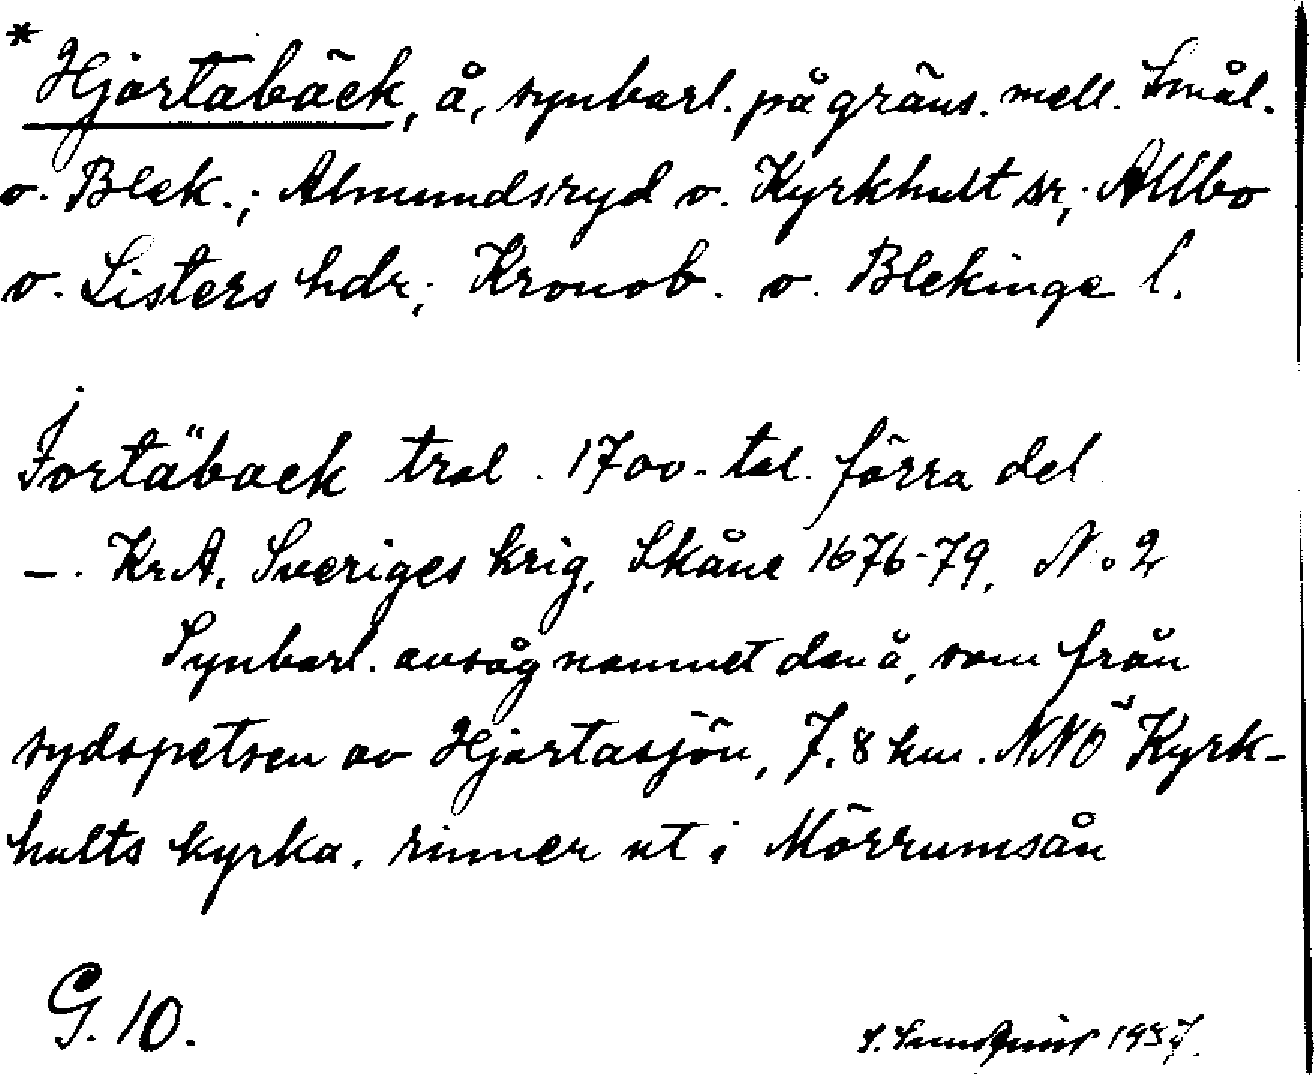 * Hjortabäck, å, synbarl. på gräns. mell. Smål.
o. Blek.; Almundsryd o. Kyrkhult sr; Allbo
o. Listers hdr; Kronob. o. Blekinge l.
Jortäback trol. 1700-tal. förra del
–. Kr.A. Sveriges krig, Skåne 1676-79. No 2
Synbarl. avsåg namnet den å, som från
sydspetsen av Hjortasjön, 7.8 km. NNO Kyrk-
hults kyrka, rinner ut i Mörrumsån
G. 10.
S. Sundquist 1937.